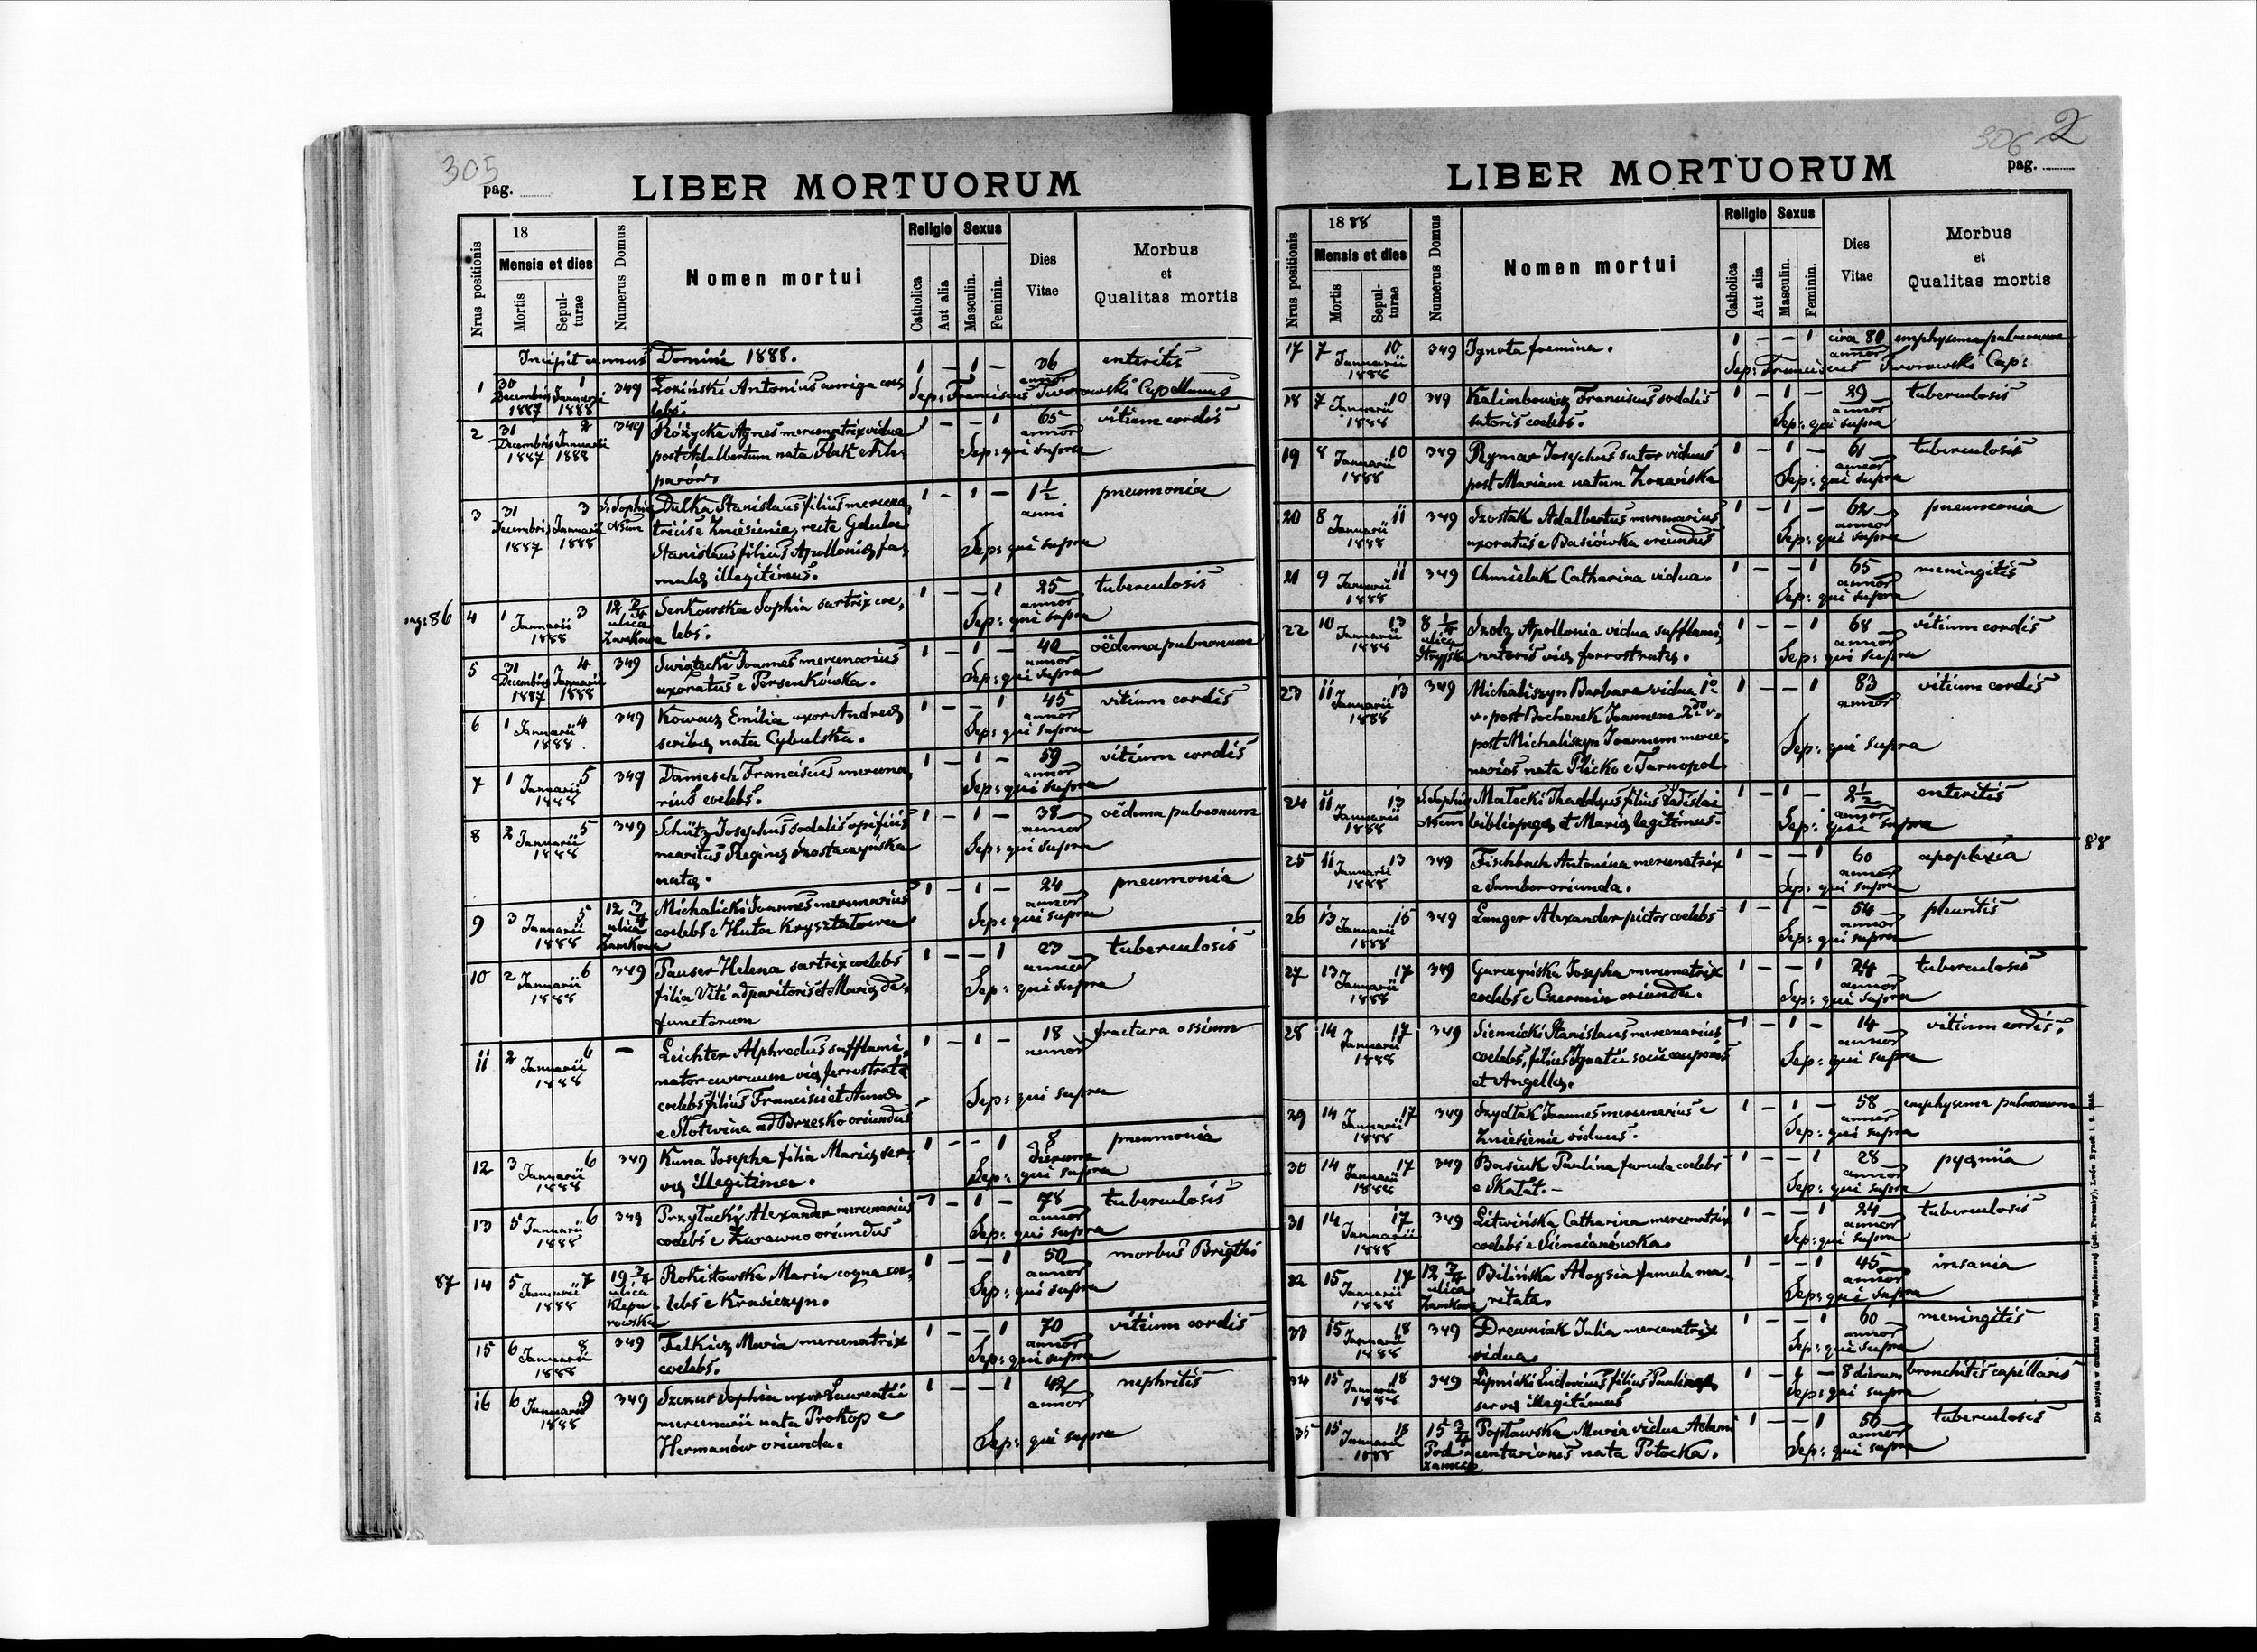 305
pag.
LIBER MORTUORUM
Nrus positionis
18
Mensis et dies
Mortis
Sepulturae
Numerus Domus
Nomen mortui
Religio
Catholica
Aut alia
Sexus
Masculin.
Feminin.
Dies
Vitae
Morbus
et
Qualitas mortis
Incipit annus Domini 1888.
1 30 Decembris 1887 1 Januarii 1888 349 Łoziński Antonius auriga coe-
lebs. 1 – 1 – 26 annor enteritis
Sep: Franciscus Tworowski Capellanus
2 31 Decembris 1887 2 Januarii 1888 349 Różycka Agnes mercenatrix vidua
post Adalbertum nata Flak e Chle-
parów 1 – – 1 65 annor vitium cordis
Sep: qui supra
3 31 Decembris 1887 3 Januarii 1888 S. Sophia Nsum Dulka Stanislaus filius mercena-
tricis e Zniesienie, recte Gdula
Stanislaus filius Apolloniae fa-
mulae illegitimus. 1 – 1 – 1 1/2 anni pneumonia
Sep: qui supra
pag: 86
4 1 Januarii 3 1888 12 2/4 ulica Zamkowa Senkowska Sophia sartrix coe-
lebs. 1 – – 1 25 annor tuberculosis
Sep: qui supra
5 31 Decembris 1887 4 Januarii 1888 349 Świątecki Joannes mercenarius
uxoratus e Persenkówka. 1 – 1 – 40 annor oëdema pulmonum
Sep: qui supra
6 1 Januarii 4 1888. 349 Kowacz Emilia uxor Andreae
scribae nata Cybulska. 1 – – 1 45 annor vitium cordis
Sep: qui supra
7 1 Januarii 5 1888 349 Damesch Franciscus mercena-
rius coelebs. 1 – 1 – 59 annor vitium cordis
Sep: qui supra
8 2 Januarii 5 1888 349 Schütz Josephus sodalis opificis
maritus Reginae Szostaczyńska
natae. 1 – 1 – 38 annor oëdema pulmonum
Sep: qui supra
9 3 Januarii 5 1888 12 3/4 ulica Zamkowa Michalicki Joannes mercenarius
coelebs e Huta Kryształowa 1 – 1 – 24 annor pneumonia
Sep: qui supra
10 2 Januarii 6 1888 349 Pauser Helena sartrix coelebs
filia Viti adparitoris et Mariae de-
functorum 1 – – 1 23 annor tuberculosis
Sep: qui supra
11 2 Januarii 6 1888 – Leichter Alphredus sufflami-
nator curruum viae ferrostratae
coelebs filius Francisci et Annae
e Słotwina ad Brzesko oriundus 1 – 1 – 18 annor fractura ossium
Sep: qui supra
12 3 Januarii 6 1888 349 Kuna Josepha filia Mariae ser-
vae illegitima. 1 – – 1 8 dierum pneumonia
Sep: qui supra
13 5 Januarii 6 1888 349 Przytacki Alexander mercenarius
coelebs e Żurawno oriundus 1 – 1 – 78 annor tuberculosis
Sep: qui supra
87
14 5 Januarii 7 1888 19 2/4 ulica Kleparowska Rokistowska Maria coqua coe-
lebs e Krasiczyn. 1 – – 1 50 annor morbus Brigthi
Sep: qui supra
15 6 Januarii 8 1888 349 Felkicz Maria mercenatrix
coelebs. 1 – – 1 70 annor vitium cordis
Sep: qui supra
16 6 Januarii 9 1888 349 Szczur Sophia uxor Laurentii
mercenarii nata Prokop e
Hermanów oriunda. 1 – – 1 42 annor nephritis
Sep: qui supra
306 2
pag.
LIBER MORTUORUM
Nrus positionis
1888
Mensis et dies
Mortis
Sepulturae
Numerus Domus
Nomen mortui
Religio
Catholica
Aut alia
Sexus
Masculin.
Feminin.
Dies
Vitae
Morbus
et
Qualitas mortis
17 7 Januarii 10 1888 349 Ignota foemina. 1 – – 1 circa 80 annor emphysema pulmonum
Sep: Franciscus Tworowski Cap:
18 7 Januarii 10 1888 349 Kalimbowicz Franciscus sodalis
sutoris coelebs. 1 – 1 – 29 annor tuberculosis
Sep: qui supra
19 8 Januarii 10 1888 349 Rymar Josephus sutor viduus
post Mariam natam Zonańska 1 – 1 – 61 annor tuberculosis
Sep: qui supra
20 8 Januarii 11 1888 349 Szostak Adalbertus mercenarius
uxoratus e Basiówka oriundus 1 – 1 – 62 annor pneumonia
Sep: qui supra
21 9 Januarii 11 1888 349 Chmielak Catharina vidua. 1 – – 1 65 annor meningitis
Sep: qui supra
22 10 Januarii 13 1888 8 1/4 ulica Stryjska Szolz Apollonia vidua sufflami-
natoris viae ferrostratae. 1 – – 1 68 annor vitium cordis
Sep: qui supra
23 11 Januarii 13 1888 349 Michaliszyn Barbara vidua 1o
v. post Bochenek Joannem 2do v.
post Michaliszyn Joannem merce-
narios nata Plicko e Tarnopol 1 – – 1 83 annor vitium cordis
Sep: qui supra
24 11 Januarii 13 1888 S. Sophia Nsum Matecki Thaddeus filius Ladislai
bibliopegae et Mariae legitimus. 1 – 1 – 2 1/2 annor enteritis
Sep: qui supra
88
25 11 Januarii 13 1888 349 Fischbach Antonina mercenatrix
e Sambor oriunda. 1 – – 1 60 annor apoplexia
Sep: qui supra
26 13 Januarii 15 1888 349 Langer Alexander pictor coelebs 1 – 1 – 54 annor pleuritis
Sep: qui supra
27 13 Januarii 17 1888 349 Gurczyńska Josepha mercenatrix
coelebs e Czermin oriunda. 1 – – 1 24 annor tuberculosis
Sep: qui supra
28 14 Januarii 17 1888 349 Siennicki Stanislaus mercenarius
coelebs, filius Ignatii socii cauponis
et Angellae. 1 – 1 – 14 annor vitium cordis.
Sep: qui supra
29 14 J 17 1888 349 Szydłak Joannes mercenarius e
Zniesienie viduus. 1 – 1 – 58 annor emphysema pulmonum
Sep: qui supra
30 14 Januarii 17 1888 349 Basiuk Paulina famula coelebs
e Skałat. – 1 – – 1 28 annor pyaemia
Sep: qui supra
31 14 Januarii 17 1888 349 Litwińska Catharina mercenatrix
coelebs e Siemianówka. 1 – – 1 24 annor tuberculosis
Sep: qui supra
32 15 Januarii 17 1888 12 2/4 ulica Zamkowa Bilińska Aloysia famula ma-
ritata. 1 – – 1 45 annor insania
Sep: qui supra
33 15 Januarii 18 1888 349 Drewniak Julia mercenatrix
vidua. 1 – – 1 60 annor meningitis
Sep: qui supra
34 15 Januarii 18 1888 349 Lipnicki Ludovicus filius Paulinae
servae illegitimus 1 – 1 – 8 dierum bronchitis capillaris
Sep: qui supra
35 15 Januarii 18 1888 15 3/4 Podzamcze Popławska Maria vidua Adami
centurionis nata Potocka. 1 – – 1 56 annor tuberculosis
Sep: qui supra